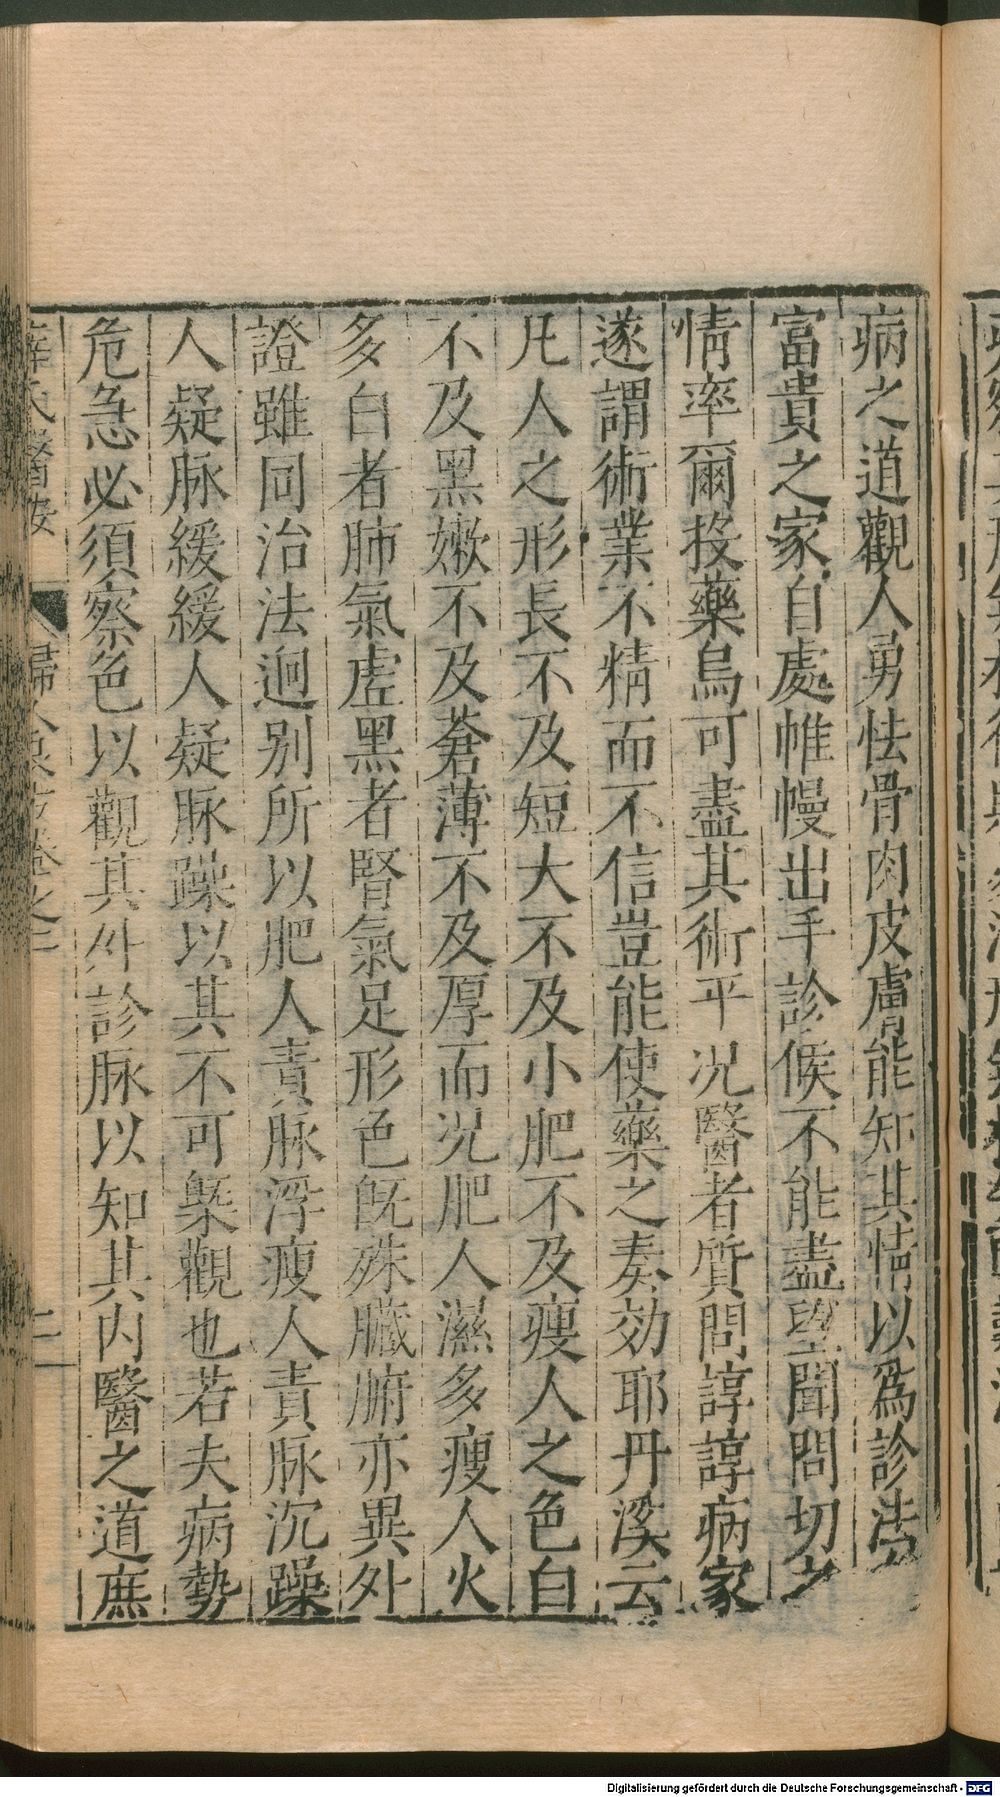 病之道觀人勇怯骨肉皮膚能知其情以爲診法
富貴之家自處帷幔出手診候不能盡望聞問切之
情率爾投藥烏可盡其術乎况醫者質問諄諄病家
遂謂術業不精而不信豈能使藥之奏効耶丹溪云
凡人之形長不及短大不及小肥不及瘦人之色白
不及黑嫩不及蒼薄不及厚而况肥人濕多瘦人火
多白者肺氣虗黑者腎氣足形色旣殊臟腑亦異外
證雖同治法迥别所以肥人責脉浮瘦人責脉沉躁
人疑脉緩緩人疑脉躁以其不可槩觀也若夫病勢
危急必須察色以觀其外診脉以知其内醫之道庶
薛氏醫按 婦人良方卷之二 二
Digitalisierung gefördert durch die Deutsche Forschungsgemeinschaft - DFG